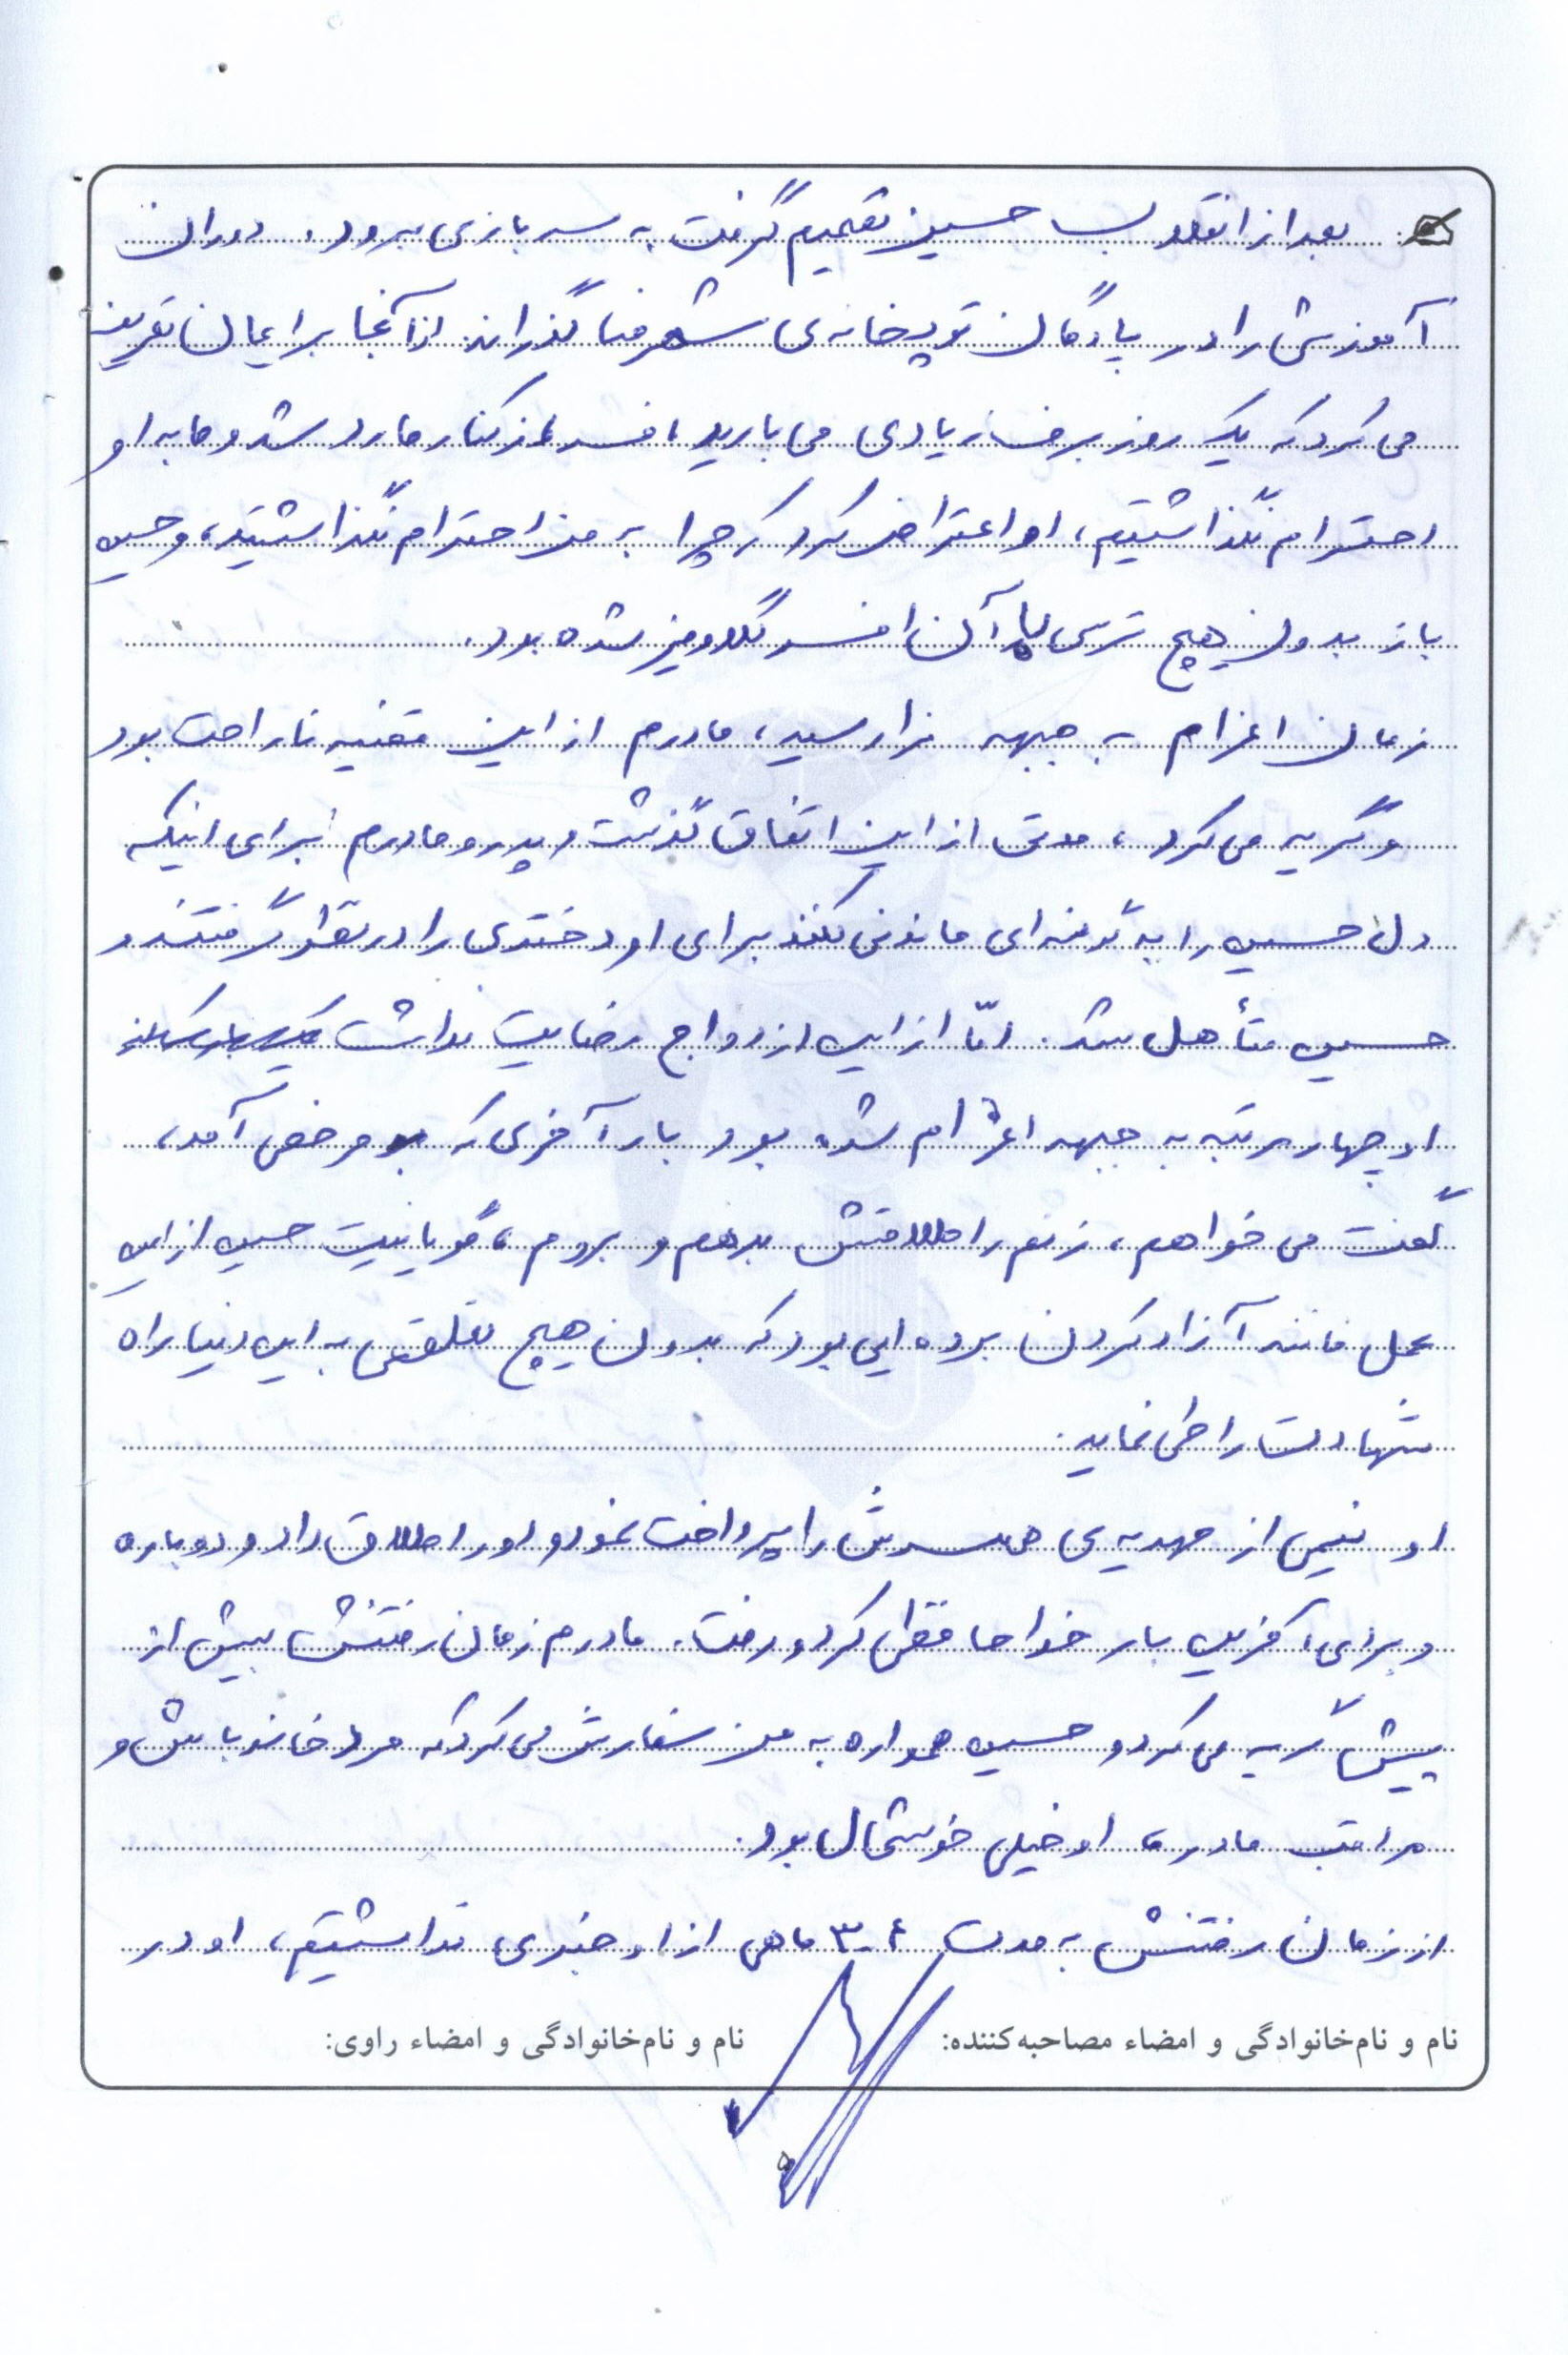 بعد از انقلاب حسین تصمیم گرفت به سربازی برود. دوران
آموزشی را در پادگان توپخانه‌ی شهرضا گذراند. از آنجا برایمان تعریف
می کرد که یک روز برف زیادی می بارید، افسر از کنار ما رد شد و ما به او
احترام نگذاشتیم، او اعتراض کرد که چرا به من احترام نگذاشتید، و حسین
باز بدون هیچ ترسی با آن افسر گلاویز شده بود.
زمان اعزام به جبهه فرا رسید، مادرم از این قضیه ناراحت بود
و گریه می کرد، مدتی از این اتفاق گذشت و پدر و مادرم برای اینکه
دل حسین را به گونه‌ای ماندنی کنند برای او دختری را در نظر گرفتند و
حسین متأهل شد. امّا از این ازدواج رضایت نداشت
او چهار مرتبه به جبهه اعزام شده بود بار آخری که به مرخصی آمد،
گفت می خواهم، زنم را طلاقش بدهم و بروم، گویا نیت حسین از این
عمل مانند آزاد کردن برده ایی بود که بدون هیچ تعلقی به این دنیا راه
شهادت را طی نماید.
او نیمی از مهریه‌ی همسرش را پرداخت نمود و او را طلاق داد و دوباره
و برای آخرین بار خداحافظی کرد و رفت. مادرم زمان رفتنش بیش از
پیش گریه می کرد و حسین همواره به من سفارش می کرد که مرد خانه باش و
مراقب مادر، او خیلی خوشحال بود.
از زمان رفتنش به مدت ۴-۳ ماهی از او خبری نداشتیم، او در
نام و نام‌خانوادگی و امضاء مصاحبه‌کننده: نام و نام‌خانوادگی و امضاء راوی: